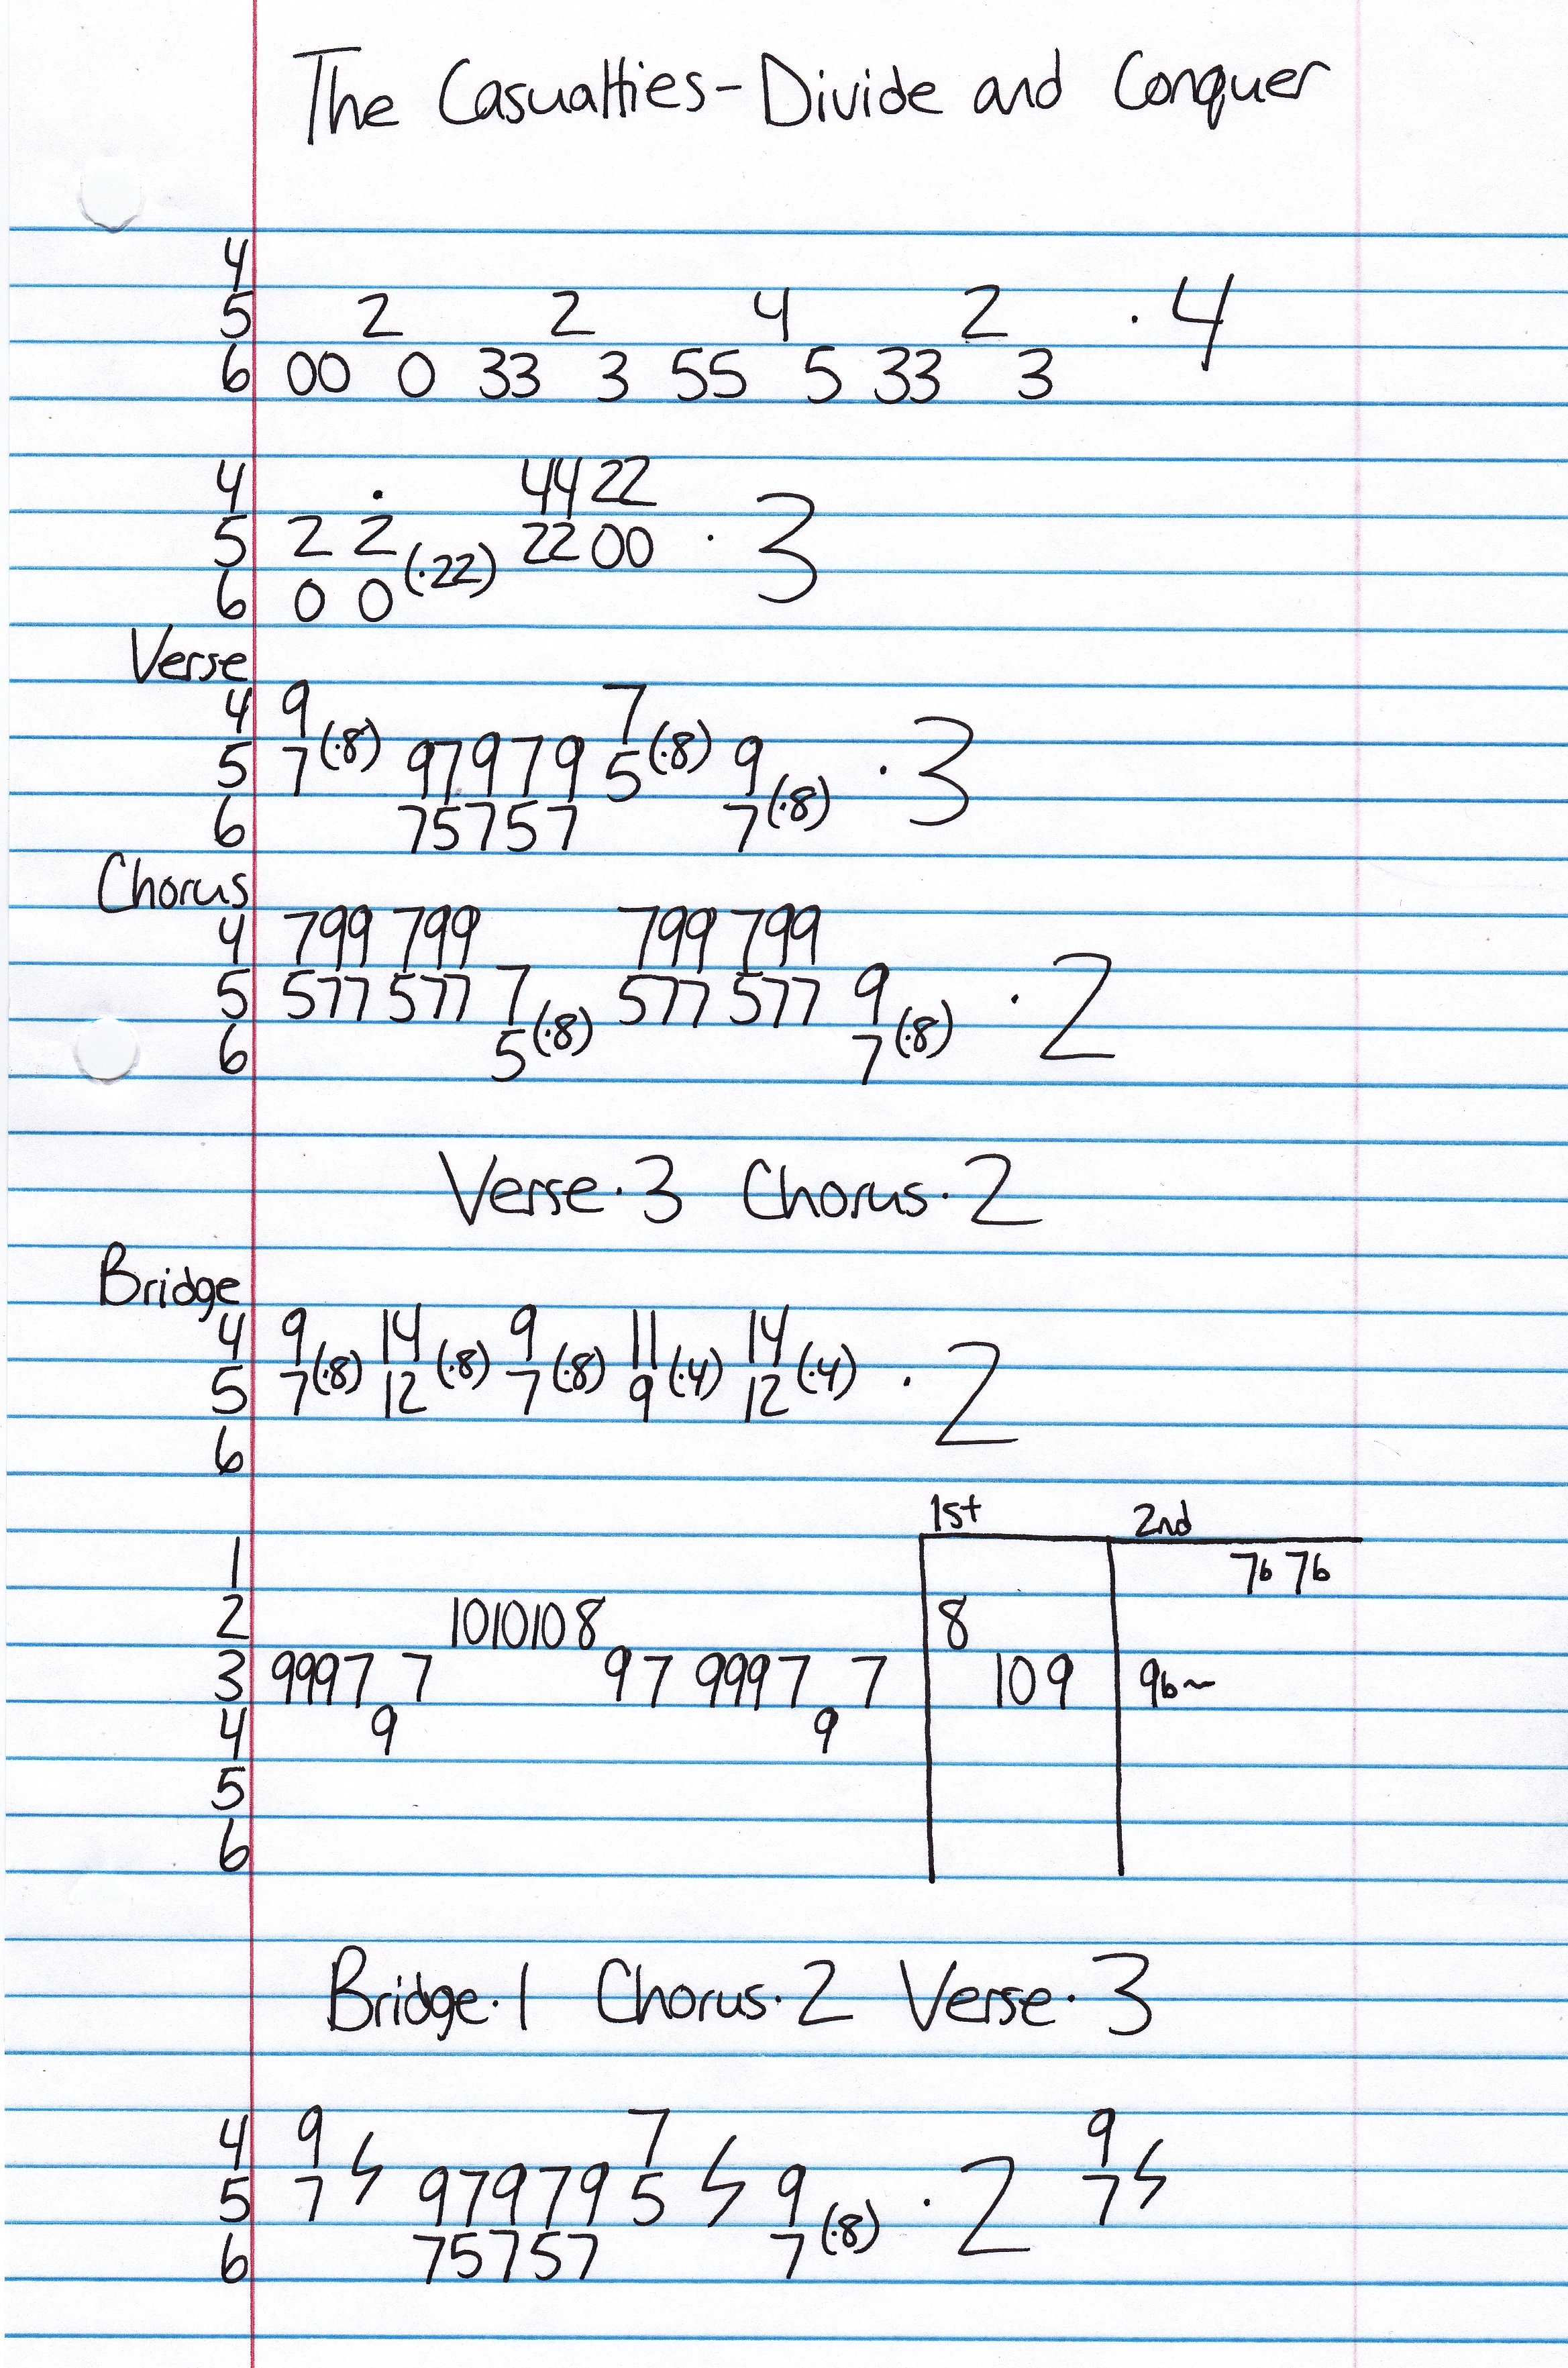 The Casualties - Divide and Conquer
4
5 2 2 4 2 · 4
6 00 0 33 3 55 5 33 3
4 · 4422
5 2 2 (·22) 2200 · 3
6 0 0
Verse
4 9 7
5 7 (·8) 97979 5 (·8) 9 · 3
6 75757 7 (·8)
Chorus
4 799 799 799 799
5 577 577 7 577 577 9 · 2
6 5 (·8) 7 (·8)
Verse · 3 Chorus · 2
Bridge
4 9 14 9 11 14
5 7 (·8) 12 (·8) 7 (·8) 9 (·4) 12 (·4) · 2
6
1st 2nd
1 7b 7b
2 1010108 8
3 9997 7 97 9997 7 109 9b~
4 9 9
5
6
Bridge · 1 Chorus · 2 Verse · 3
4 9 7 9
5 7 97979 5 9 · 2 7
6 75757 7 (·8)